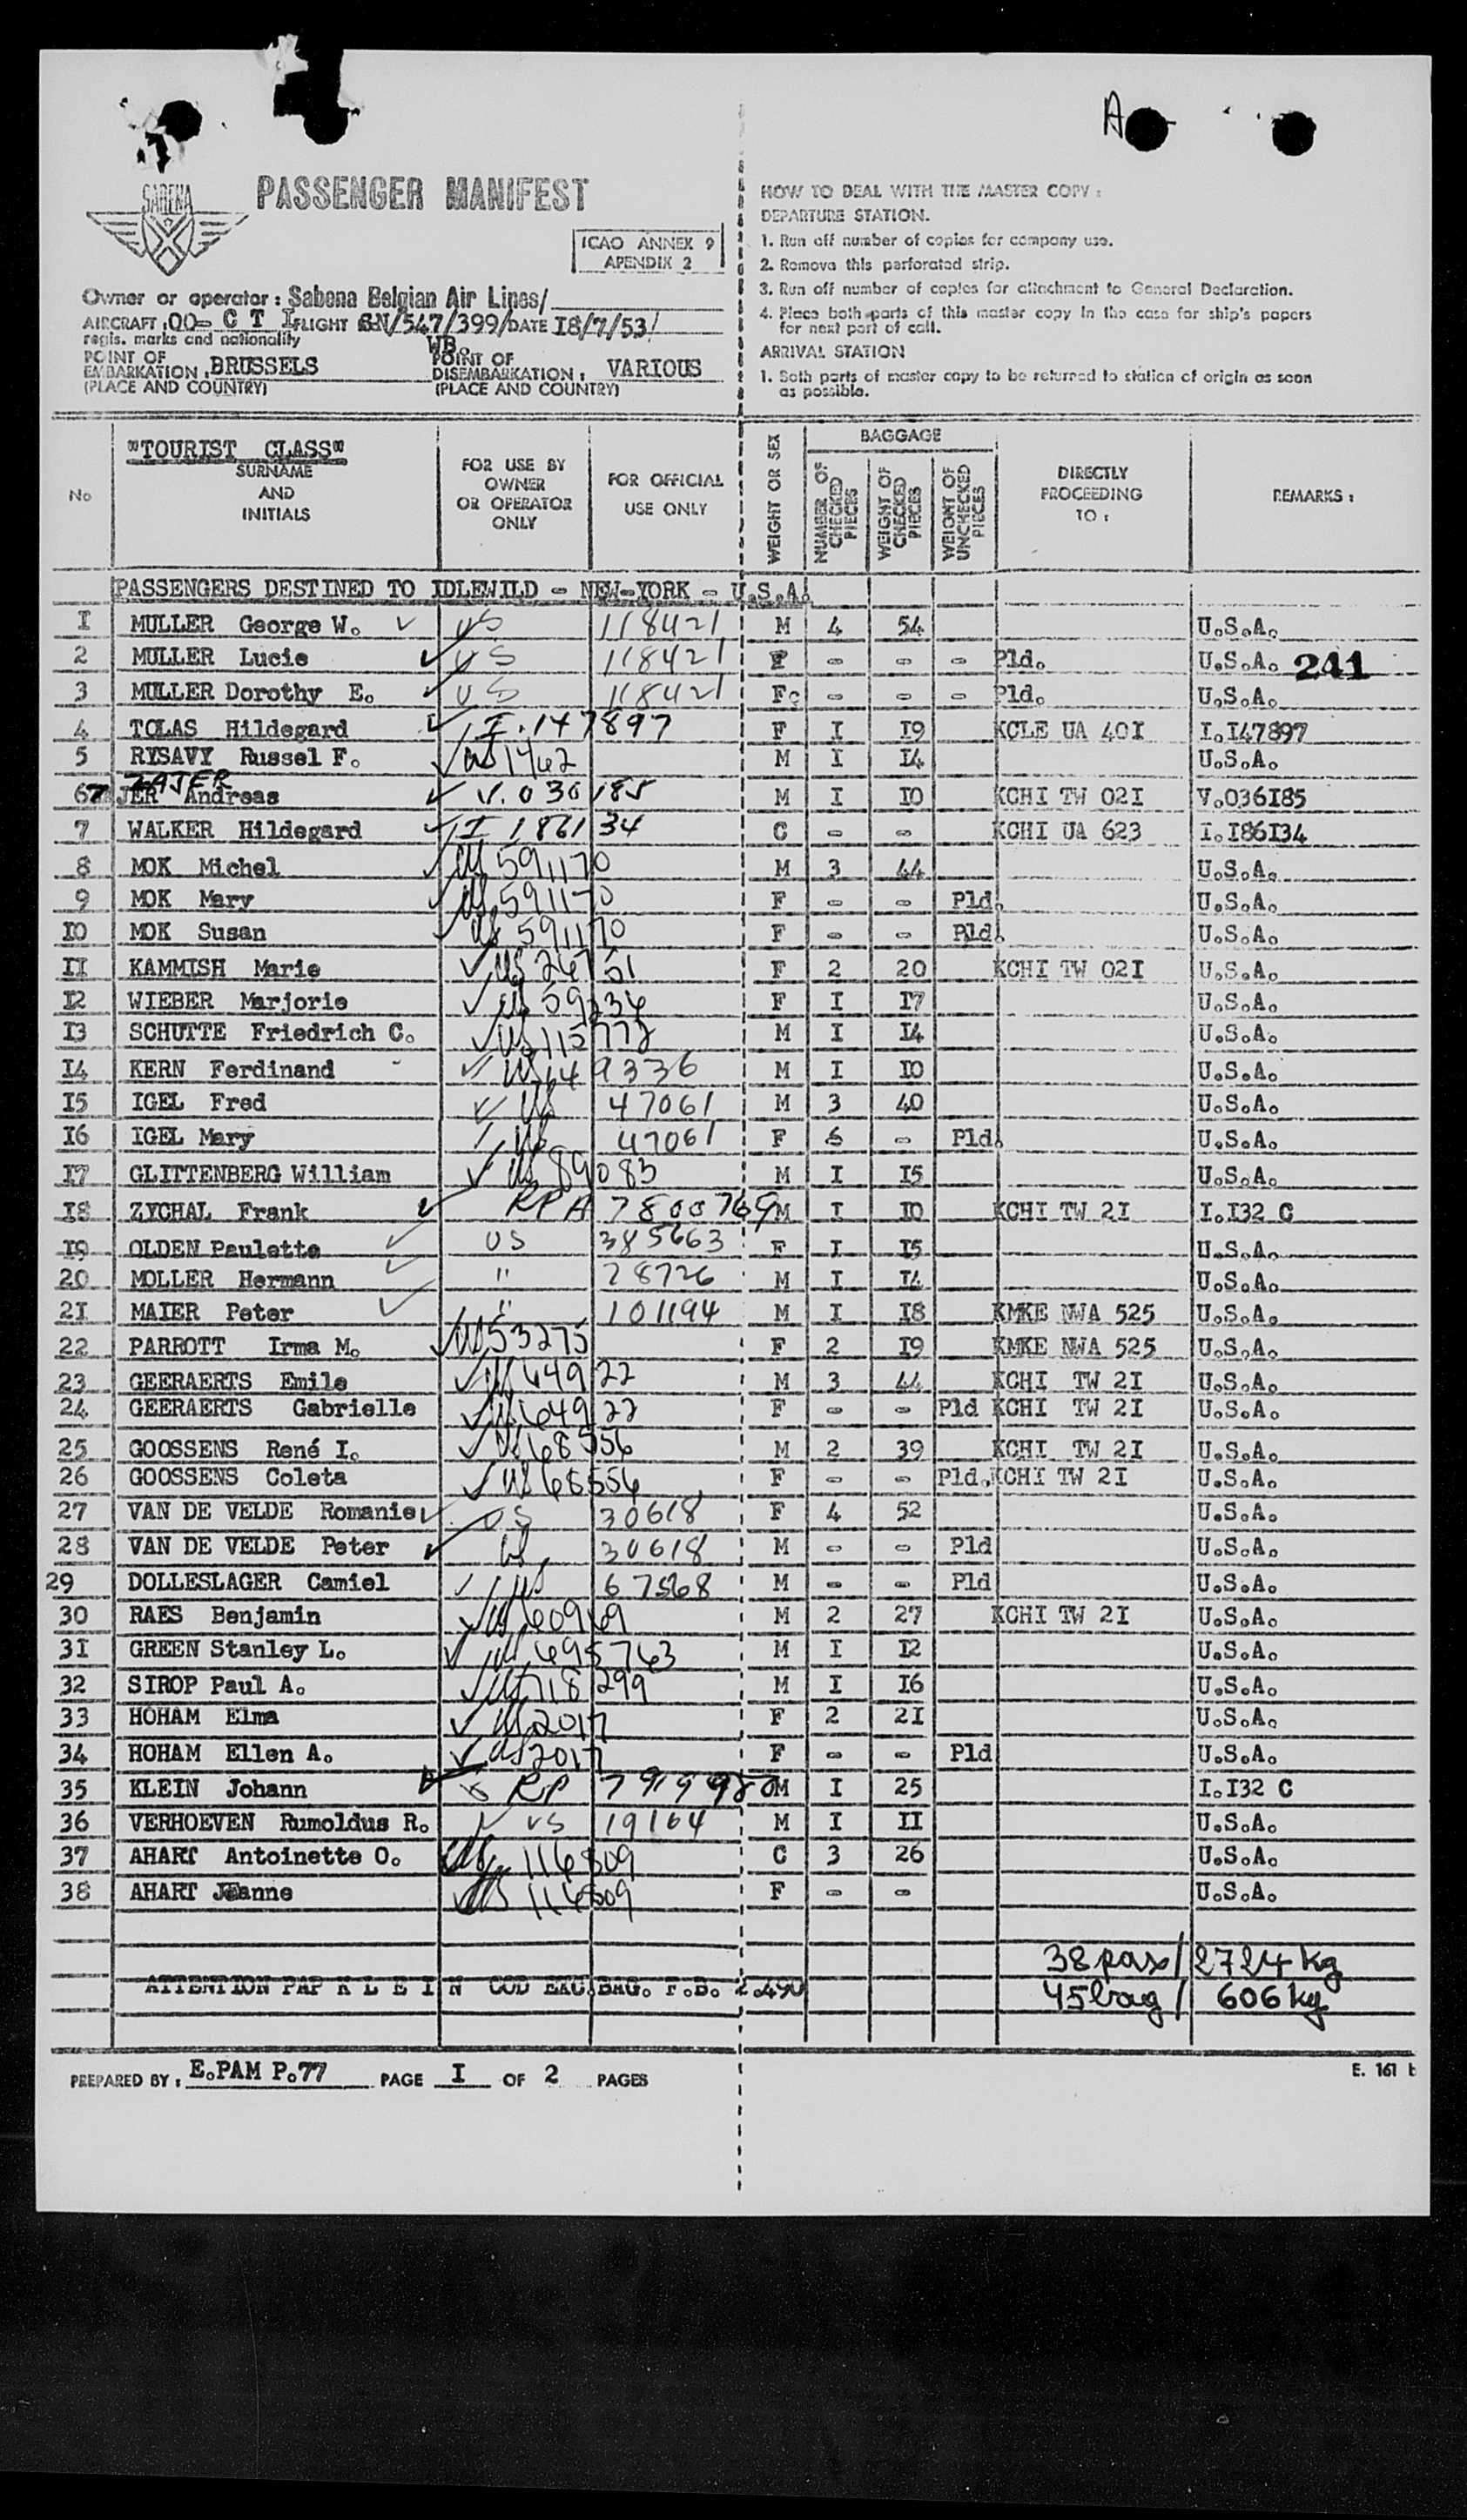 A
SABENA
PASSENGER MANIFEST
ICAO ANNEX 9
APENDIX 2
Owner or operator : Sabena Belgian Air Lines/
AIRCRAFT : OO- C T I FLIGHT SN/547/399/ DATE I8/7/53/
regis. marks and nationality
WB.
POINT OF EMBARKATION : BRUSSELS POINT OF DISEMBARKATION : VARIOUS
(PLACE AND COUNTRY) (PLACE AND COUNTRY)
HOW TO DEAL WITH THE MASTER COPY :
DEPARTURE STATION.
1. Run off number of copies for company use.
2. Remove this perforated strip.
3. Run off number of copies for attachment to General Declaration.
4. Place both parts of this master copy in the case for ship's papers
for next port of call.
ARRIVAL STATION
1. Both parts of master copy to be returned to station of origin as soon
as possible.
No
"TOURIST CLASS"
SURNAME
AND
INITIALS
FOR USE BY
OWNER
OR OPERATOR
ONLY
FOR OFFICIAL
USE ONLY
WEIGHT OR SEX
BAGGAGE
NUMBER OF CHECKED PIECES
WEIGNT OF CHECKED PIECES
WEIGNT OF UNCHECKED PIECES
DIRECTLY
PROCEEDING
TO :
REMARKS :
PASSENGERS DESTINED TO IDLEWILD - NEW-YORK - U.S.A.
I MULLER George W. ✓ US 118421 M 4 54 U.S.A.
2 MULLER Lucie ✓ US 118421 F - - - Pld. U.S.A. 241
3 MULLER Dorothy E. ✓ US 118421 F. - - - Pld. U.S.A.
4 TOLAS Hildegard ✓ I.147897 F I I9 KCLE UA 40I I.I47897
5 RYSAVY Russel F. ✓ US 1742 M I I4 U.S.A.
6 ZAJER Andreas ✓ V.036185 M I I0 KCHI TW 02I V.036I85
7 WALKER Hildegard ✓ I 186134 C - - KCHI UA 623 I.I86I34
8 MOK Michel ✓ US 591170 M 3 44 U.S.A.
9 MOK Mary ✓ US 591170 F - - Pld. U.S.A.
I0 MOK Susan ✓ US 591170 F - - Pld. U.S.A.
II KAMMISH Marie ✓ US 24751 F 2 20 KCHI TW 02I U.S.A.
I2 WIEBER Marjorie ✓ US 59234 F I I7 U.S.A.
I3 SCHUTTE Friedrich C. ✓ US 115772 M I I4 U.S.A.
I4 KERN Ferdinand ✓ US 149336 M I I0 U.S.A.
I5 IGEL Fred ✓ US 47061 M 3 40 U.S.A.
I6 IGEL Mary ✓ US 47061 F - Pld. U.S.A.
I7 GLITTENBERG William ✓ US 89083 M I I5 U.S.A.
I8 ZYCHAL Frank ✓ RPA 7800769 M I I0 KCHI TW 2I I.I32 C
I9 OLDEN Paulette ✓ US 385663 F I I5 U.S.A.
20 MOLLER Hermann ✓ " 78726 M I I4 U.S.A.
2I MAIER Peter ✓ " 101194 M I I8 KMKE NWA 525 U.S.A.
22 PARROTT Irma M. ✓ US 53275 F 2 I9 KMKE NWA 525 U.S.A.
23 GEERAERTS Emile ✓ US 64922 M 3 44 KCHI TW 2I U.S.A.
24 GEERAERTS Gabrielle ✓ US 64922 F - - Pld KCHI TW 2I U.S.A.
25 GOOSSENS René I. ✓ US 68556 M 2 39 KCHI TW 2I U.S.A.
26 GOOSSENS Coleta ✓ US 68556 F - - Pld. KCHI TW 2I U.S.A.
27 VAN DE VELDE Romanie ✓ US 30618 F 4 52 U.S.A.
28 VAN DE VELDE Peter ✓ US 30618 M - - Pld U.S.A.
29 DOLLESLAGER Camiel ✓ US 67568 M - - Pld U.S.A.
30 RAES Benjamin ✓ US 60969 M 2 27 KCHI TW 2I U.S.A.
3I GREEN Stanley L. ✓ US 695763 M I I2 U.S.A.
32 SIROP Paul A. ✓ US 718299 M I I6 U.S.A.
33 HOHAM Elma ✓ US 2017 F 2 2I U.S.A.
34 HOHAM Ellen A. ✓ US 2017 F - - Pld U.S.A.
35 KLEIN Johann ✓ RP 7919980 M I 25 I.I32 C
36 VERHOEVEN Rumoldus R. ✓ US 19164 M I II U.S.A.
37 AHART Antoinette O. US 116809 C 3 26 U.S.A.
38 AHART Jeanne ✓ US 116809 F - - U.S.A.
38 pax / 2724 kg
ATTENTION PAP K L E I N COD EXC.BAG. F.B. 2.490
45 bag / 606 kg
PREPARED BY : E.PAM P.77 PAGE I OF 2 PAGES
E. 161 b